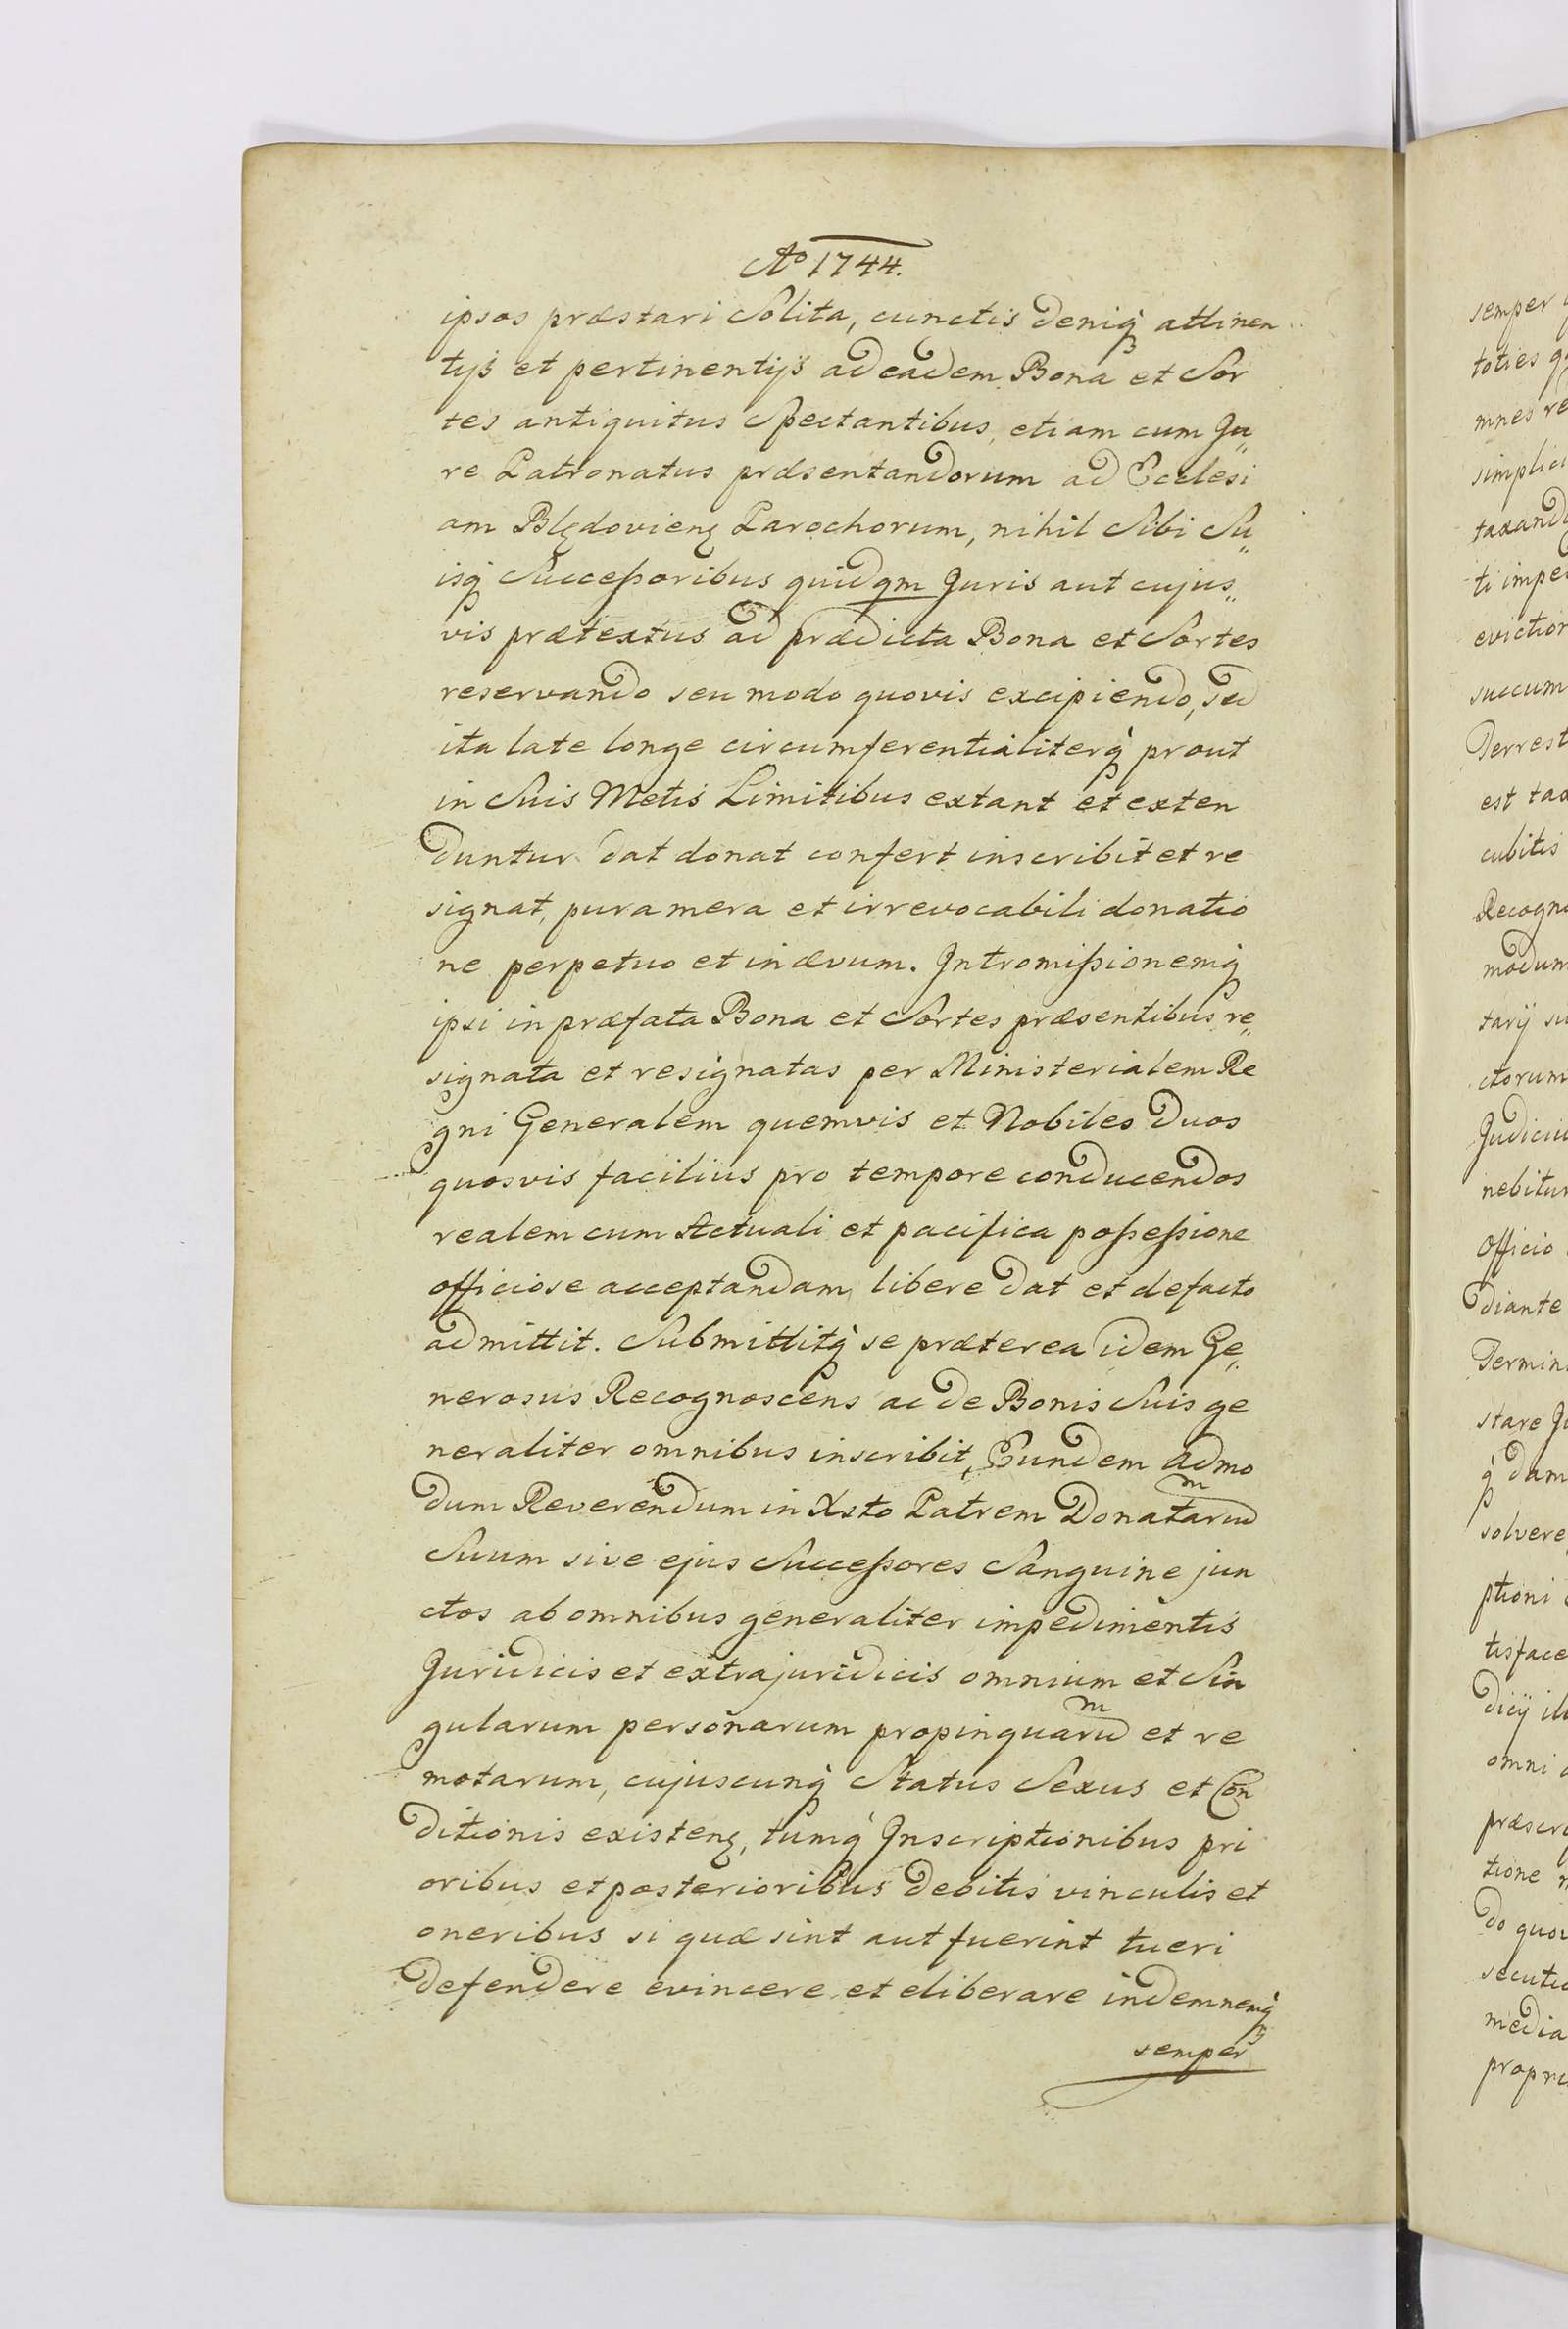 Ao 1744.
ipsos præstari Solita, cunctis deniq́ʒ attinen
tijs et pertinentijs ad eadem Bona et Sor
tes antiquitus Spectantibus, etiam cum Ju„
re Patronatus præsentandorum ad Ecclesi
am Blędovienȩ Parochorum, nihil Sibi Su„
isq́ Succeſsoribus quidqm Juris aut cujus„
vis prætextus ad prædicta Bona et Sortes
reservando seu modo quovis excipiendo, sed
ita late longe circumferentialiterq́ prout
in Suis Metis Limitibus extant et exten
duntur dat donat confert inscribit et re
signat, pura mera et irrevocabili donatio
ne perpetuo et in ævum. Intromiſsionemq́
ipsi in præfata Bona et Sortes præsentibus re„
signata et resignatas per Ministerialem Re
gni Generalem quemvis et Nobiles Duos
quosvis facilius pro tempore conducendos
realem cum Actuali et pacifica poſseſsione
officiose acceptandam, libere dat et defacto
admittit. Submittitq́ se præterea idem Ge„
nerosus Recognoscens ac de Bonis Suis ge
neraliter omnibus inscribit, Eundem admo
dum Reverendum in Xsto Patrem Donataruͫ
Suum sive ejus Succeſsores Sanguine jun
ctos ab omnibus generaliter impedimentis
Juridicis et extrajuridicis omnium et Sin
gularum personarum propinquaruͫ et re
motarum, cujuscunq́ Status Sexus et Con
ditionis existenȩ, tumq́ Inscriptionibus pri
oribus et posterioribus debitis vinculis et
oneribus si quæ sint aut fuerint tueri
defendere evincere et eliberare indemnemq́ʒ
semper
semper
toties
mnes re
simplici
taxand
ti impe
eviction
succum
Terrest
est tax
cubitis
Recogn
modum
tarij su
ctorum
Judiciu
nebitur
Officio
diante
Termin
stare Ju
q́ dam
solvere
ptioni
tisface
dicij il
omni
præscr
tione
do quov
secutio
media
propri